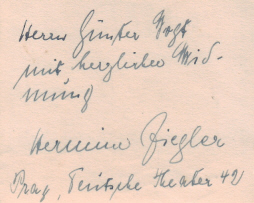 Herrn Günter Vogt
mit herzlicher Wid-
mung
Hermine Ziegler
Prag, Deutsche Theater 42